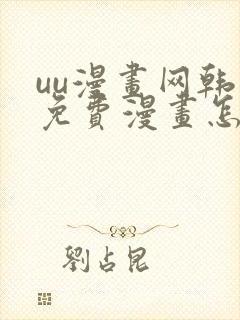 uu漫畫网韩
免費漫畫怎
劉占昆